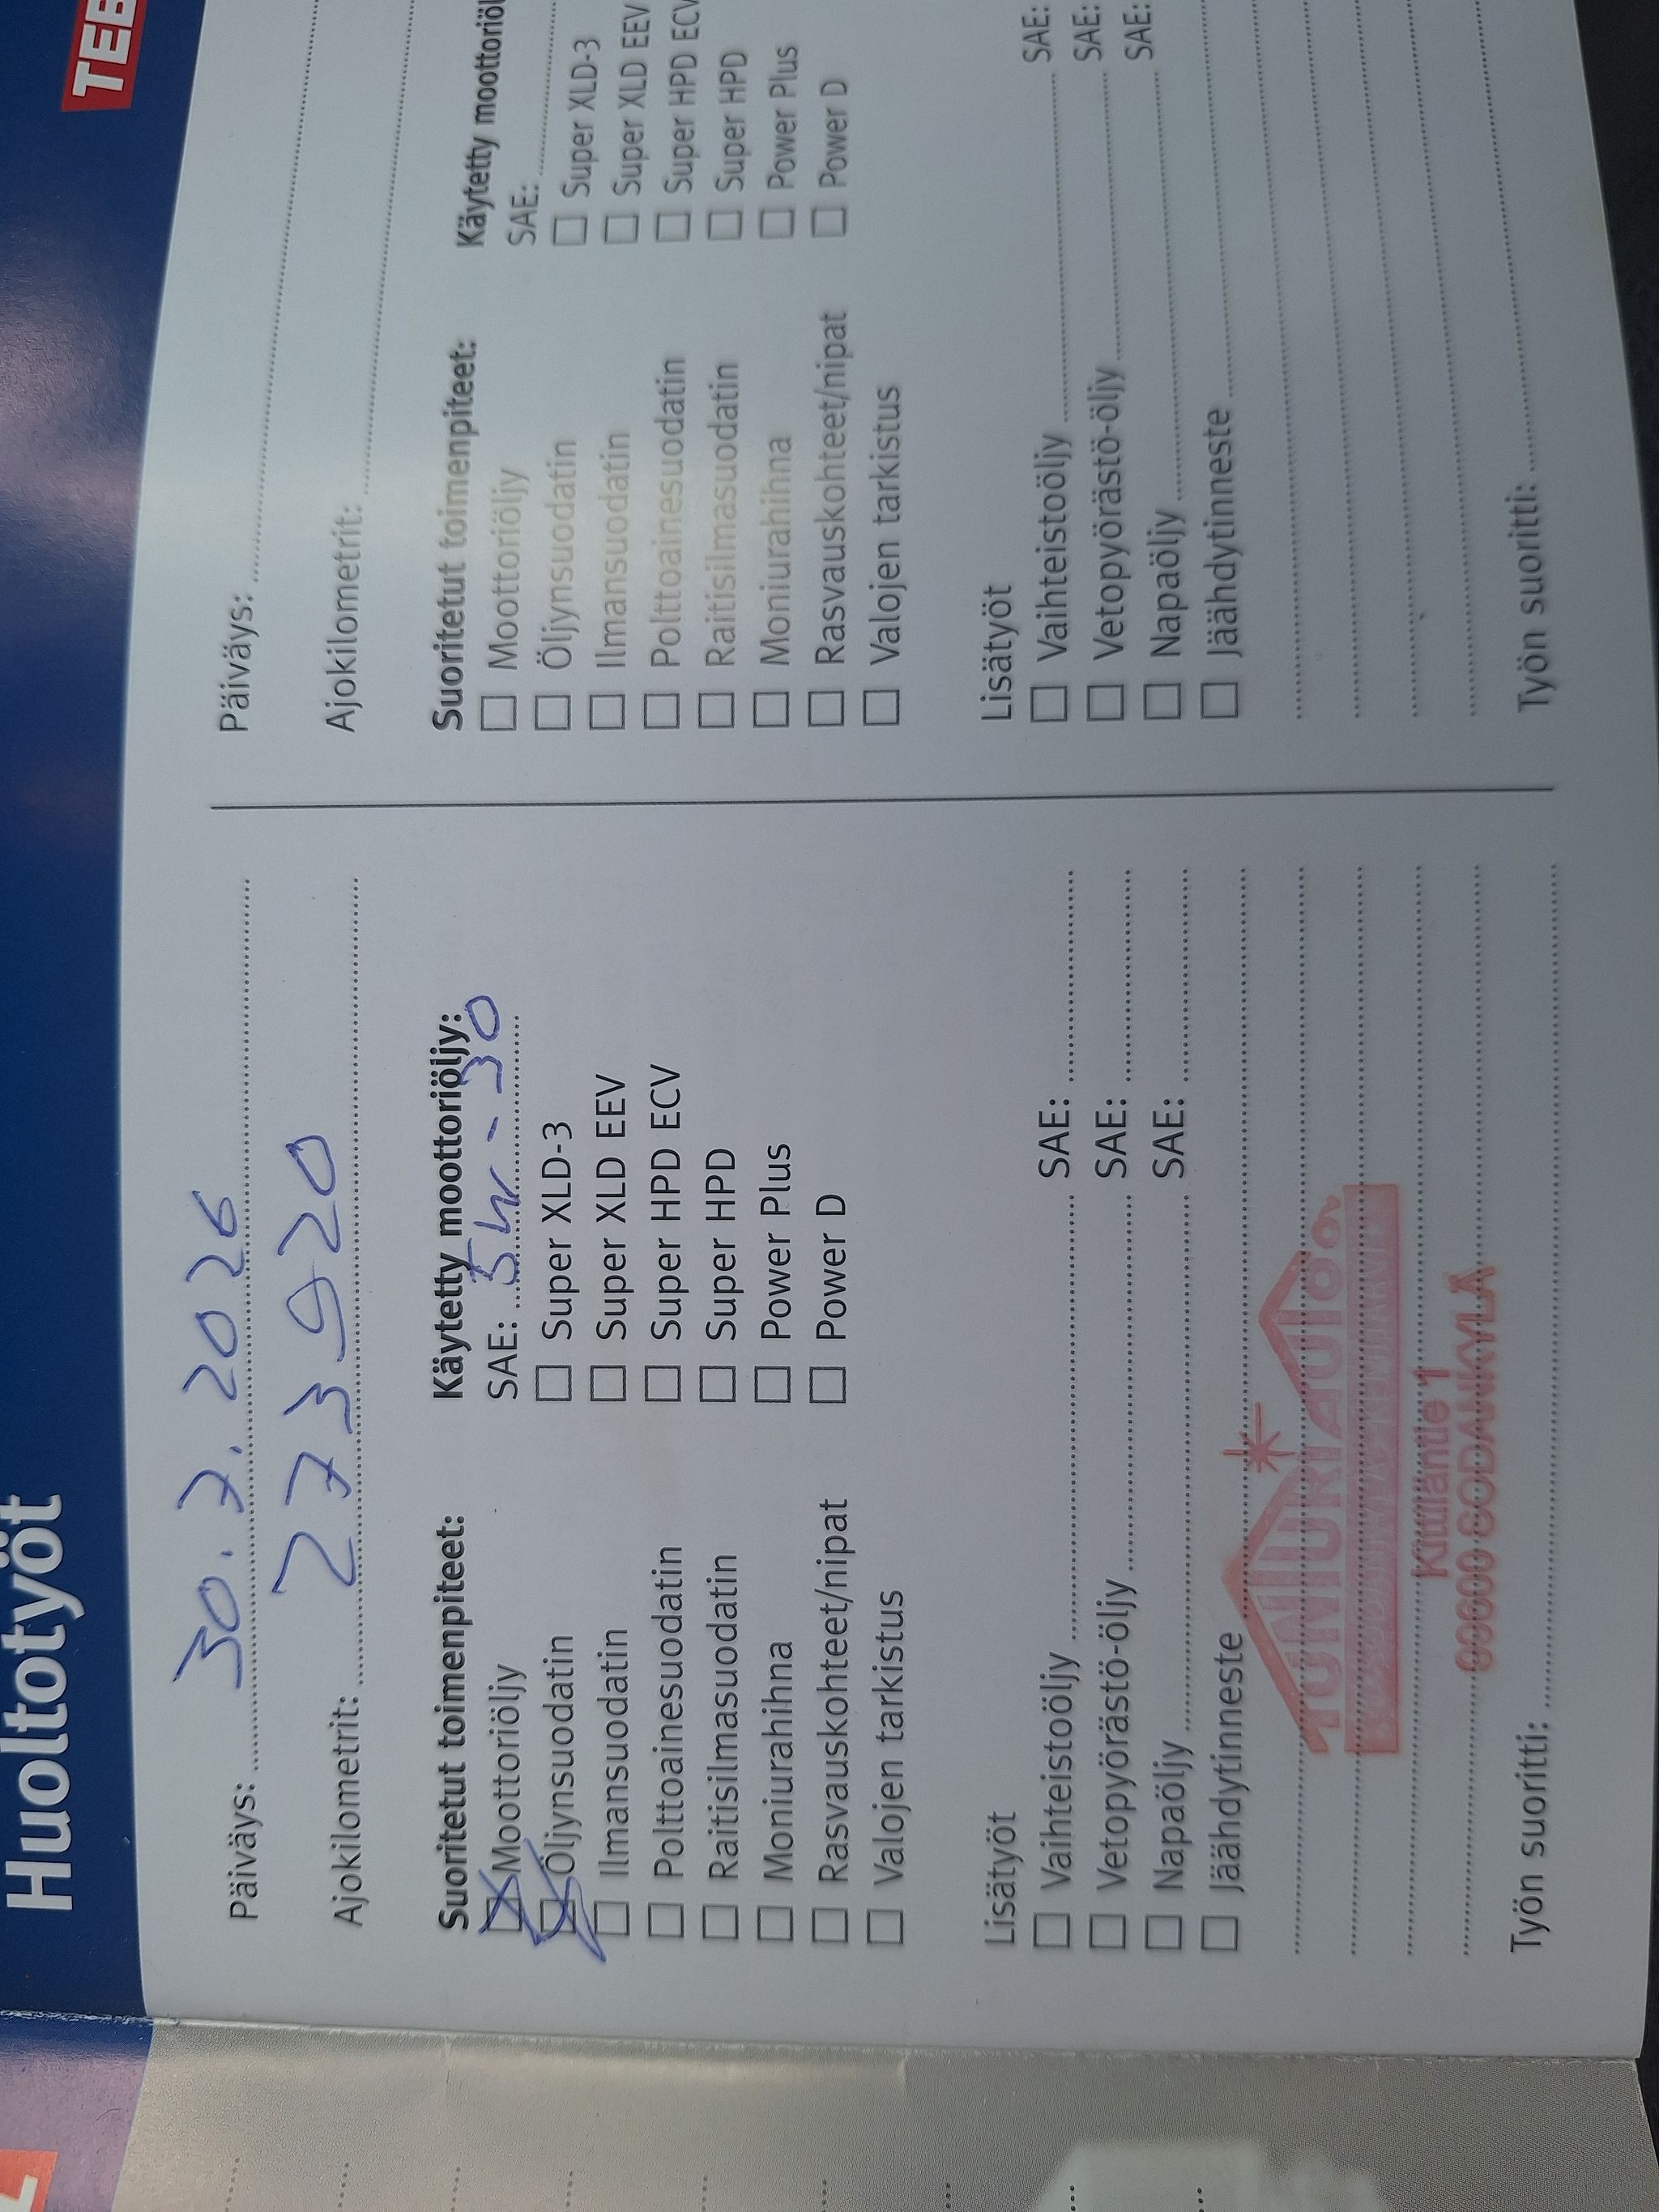 Huoltotyöt
TEB
Päiväys: 30.7.2026
Ajokilometrit: 273920
Suoritetut toimenpiteet:
Moottoriöljy
Öljynsuodatin
Ilmansuodatin
Polttoainesuodatin
Raitisilmasuodatin
Moniurahihna
Rasvauskohteet/nipat
Valojen tarkistus
Käytetty moottoriöljy:
SAE: 5W-30
Super XLD-3
Super XLD EEV
Super HPD ECV
Super HPD
Power Plus
Power D
Lisätyöt
Vaihteistoöljy SAE:
Vetopyörästö-öljy SAE:
Napaöljy SAE:
Jäähdytinneste
Kittiläntie 1
99600 SODANKYLÄ
Työn suoritti:
Päiväys:
Ajokilometrit:
Suoritetut toimenpiteet:
Moottoriöljy
Öljynsuodatin
Ilmansuodatin
Polttoainesuodatin
Raitisilmasuodatin
Moniurahihna
Rasvauskohteet/nipat
Valojen tarkistus
Käytetty moottoriöl
SAE:
Super XLD-3
Super XLD EEV
Super HPD ECV
Super HPD
Power Plus
Power D
Lisätyöt
Vaihteistoöljy SAE:
Vetopyörästö-öljy SAE:
Napaöljy SAE:
Jäähdytinneste
Työn suoritti: